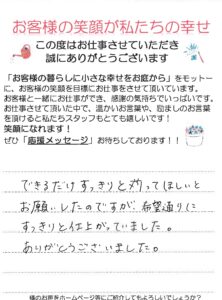 お客様の笑顔が私たちの幸せ
この度はお仕事させていただき
誠にありがとうございます
「お客様の暮らしに小さな幸せをお庭から」をモットー
に、お客様の笑顔を目標にお仕事をさせて頂いています。
お客様と一緒にお仕事ができ、感謝の気持ちでいっぱいです。
お仕事させて頂いた中で、温かいお言葉や、励ましのお言葉
を頂けると私たちスタッフもとても嬉しいです！
笑顔になれます！
ぜひ「応援メッセージ」お待ちしております！！
できるだけすっきりと刈ってほしいと
お願いしたのですが、希望通りに
すっきりと仕上がっていました。
ありがとうございました。
様のお声をホームページ等にご紹介してもよろしいでしょうか？